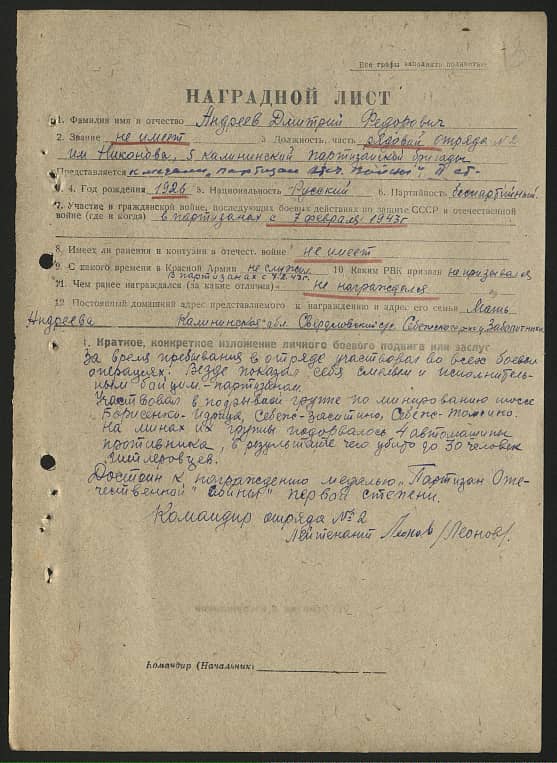 Все графы заполнять полностью
НАГРАДНОЙ ЛИСТ
1. Фамилия имя и отчество Андреев Дмитрий Федорович
2. Звание не имеет 3 Должность, часть рядовой отряда №2
им Никонова, 5 калининской партизанской бригады
Представляется к медали, партизан отеч. войны" II ст.
4. Год рождения 1926 5. Национальность Русский 6. Партийность беспартийный
7. Участие в гражданской войне, последующих боевых действиях по защите СССР и отечественной
войне (где и когда) в партизанах с 7 февраля 1943г
8. Имеет ли ранения и контузии в отечест. войне не имеет
9. С какого времени в Красной Армии не служил 10 Каким РВК призван не призывался
В партизанах с 7.2.43г.
11. Чем ранее награждался (за какие отличия) не награждался
12 Постоянный домашний адрес представляемого к награждению и адрес его семьи Мать
Андреева Калининская обл. Себежского р-на
1. Краткое, конкретное изложение личного боевого подвига или заслуг
За время пребывания в отряде участвовал во всех боевых
операциях. Везде показал себя смелым и исполнитель-
ным бойцом-партизаном.
Участвовал в подрывной группе по минированию шоссе
Борисенки-Идрица, Себеж-Заситино, Себеж-Томсино.
На минах их группы подорвалось 4 автомашины
противника, в результате чего убито до 30 человек
гитлеровцев.
Достоин к награждению медалью „Партизан Оте-
чественной войны" первой степени.
Командир отряда №2
Лейтенант Леонов /Леонов/.
Командир (Начальник)